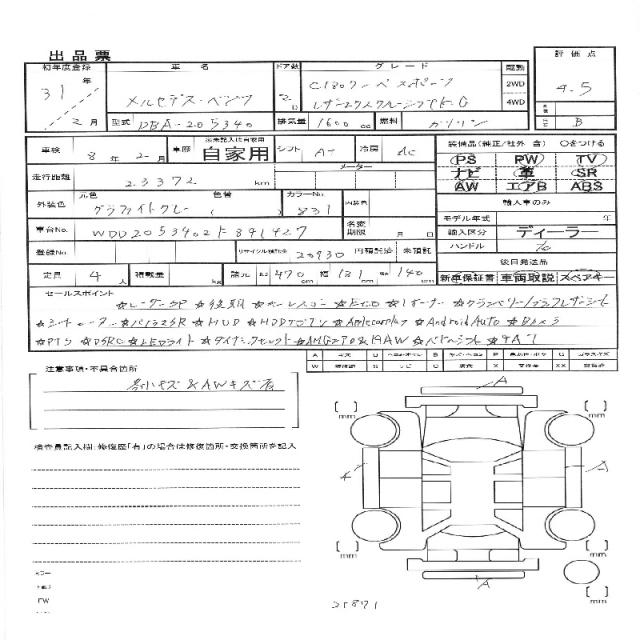 出品票
初年度登録 車名 ドア数 グレード 駆動 評価点
31年 メルセデス・ベンツ 2D C180クーペスポーツ 2WD 4.5
レザーエクスクルーシブPKG 4WD
2月 型式 DBA-205340 排気量 1600cc 燃料 ガソリン B
車検 8年2月 車歴 自家用 シフト AT 冷房 AC
装備品(純正/社外 含) ○をつける
PS PW TV
ナビ 革 SR
AW エアB ABS
走行距離 23372 km メーター
外装色 元色 グラファイトグレー 色替 カラーNo. 831 内装色
輸入車のみ
モデル年式 年
車台No. WDD2053402F891427 名変期限 月 日
輸入区分 ディーラー
登録No. リサイクル預託金 20930 円 預託済 未預託
ハンドル 右
後日発送品
定員 4人 積載量 kg 諸元 長さ 470cm 幅 181cm 高さ 140cm
新車保証書 車両取説 スペアキー
セールスポイント
★レーダーSP ★後期 ★キーレスゴー ★ETC ★1オーナー ★クランベリー/ブラックレザーシート
★シートヒーター ★パノラマSR ★HUD ★HDDナビTV ★Applecarplay ★AndroidAuto ★Bカメラ
★PTS ★DSRC ★LEDライト ★ダイナミックセレクト ★AMGエアロ&18AW ★パドルシフト ★9AT
注意事項・不具合箇所
小キズ&AWキズ有
検査員記入欄:修復歴「有」の場合は修復箇所・交換箇所を記入
A
A
A
mm
mm
mm
mm
21871